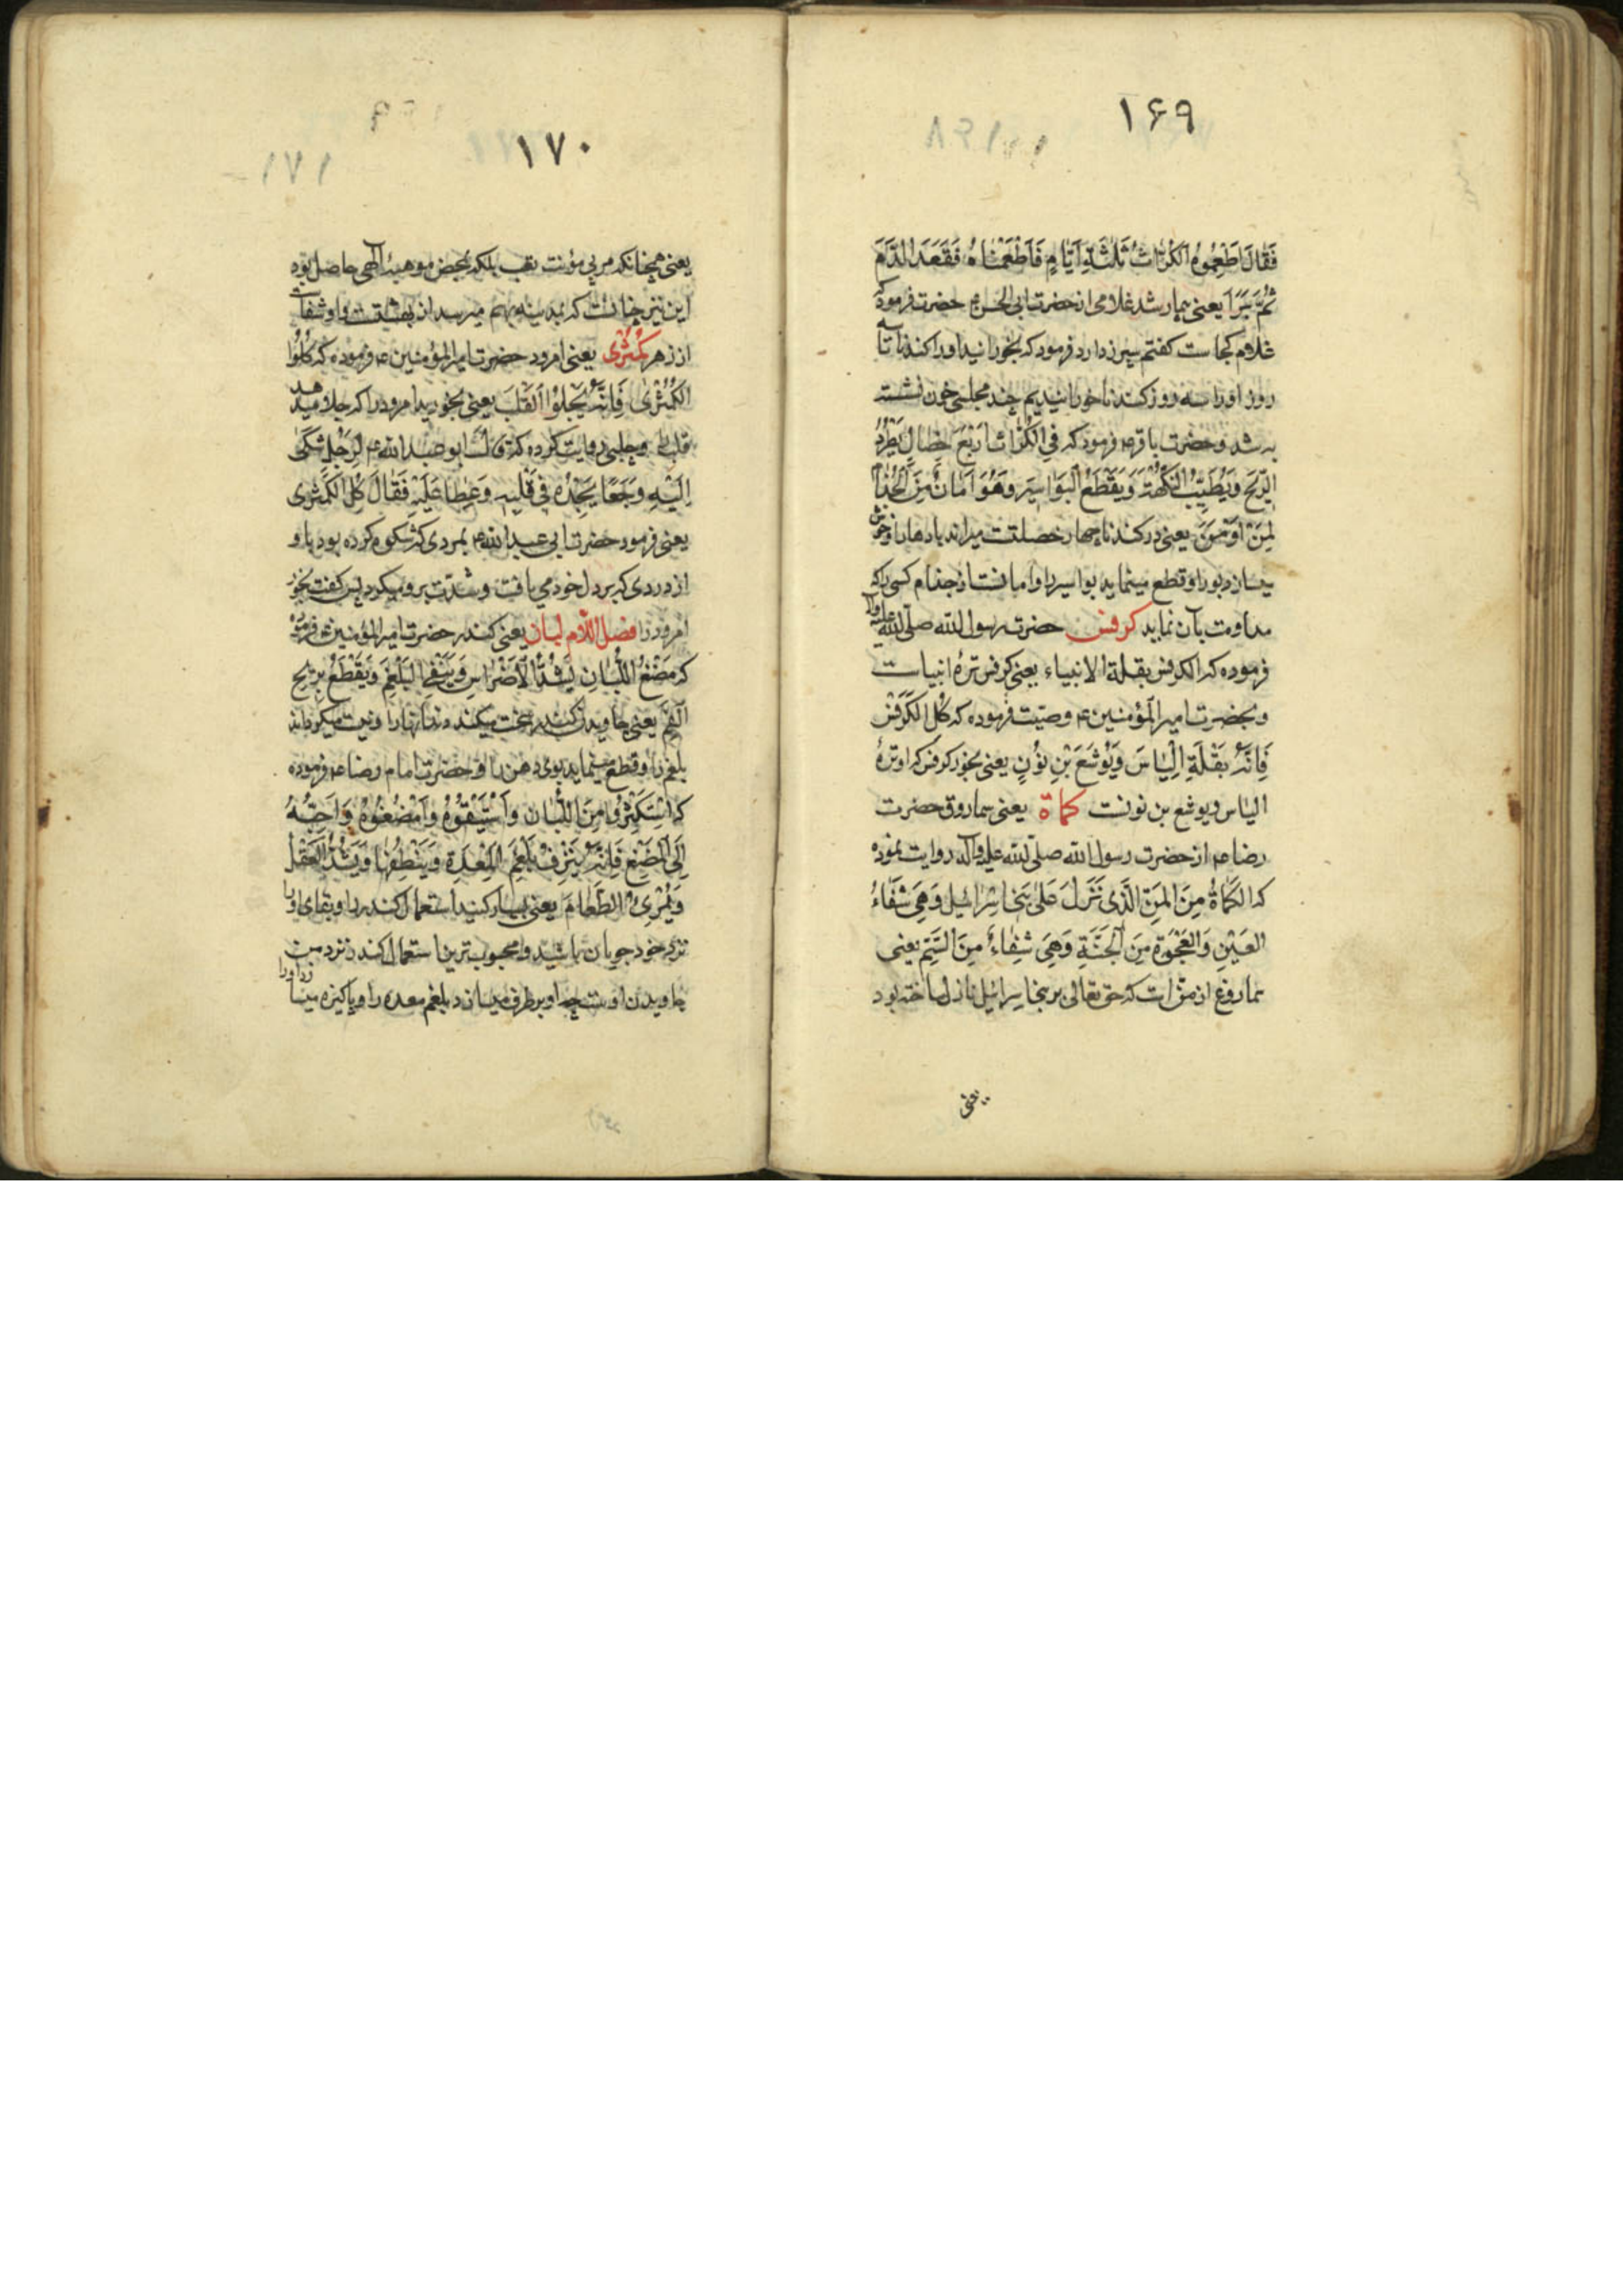 ۱۶۹
فَقَالَ اَطْعِمُوهُ الكُرّاثَ ثَلثَةَ اَيّامٍ فَاَطْعَمْنَاهُ فَقَعَدَ الدَّمَ
ثُمَّ بَرَأَ يعنى بيمار شد غلامى از حضرت ابى الحسن حضرت فرمود كه
غلام كجاست كفتم سپرز دارد فرمود كه بخورانيد او را كندنا تا سه
روز او را سه روز كندنا خورانيديم چند مجلسى خون نشسته
به شد و حضرت باقر ع فرمود كه فى الكُرّاث اَرْبَعُ خِصَالٍ يَطْرُدُ
الرّيحَ وَيُطَيِّبُ النَّكْهَةَ وَيَقْطَعُ البَوَاسيَر وَهُوَ اَمَانٌ مِنَ الْجُذَامِ
لِمَنْ اَدْمَنَ يعنى در كندنا چهار خصلتست ميراند بادها را و خوش
ميسازد بو را و قطع مينمايد بواسير را و امانست از جذام كسى را كه
مداومت بآن نمايد كرفس حضرت رسول الله صلى الله عليه وآله
فرموده كه الكرفس بقلة الانبياء يعنى كرفس ترهٔ انبياست
و بحضرت امير المؤمنين ع وصيت فرموده كه كُلِ الكَرَفْسَ
فَاِنَّهُ بَقْلَةِ اِلْيَاسَ وَيُوشَعَ بْنِ نُوْنٍ يعنى بخور كرفس كه او ترهٔ
الياس و يوشع بن نونست كماة يعنى سماروق حضرت
رضا ع از حضرت رسول الله صلى الله عليه وآله روايت نموده
كه الكَمَاةُ مِنَ المَنِّ الَّذِى نَزَلَ عَلىٰ بَنى اِسْرائيل وَهِىَ شَفَاءُ
العَيْنِ وَالعَجْوَةُ مِنَ الْجَنَّةِ وَهِىَ شِفَاءٌ مِنَ السَّمِّ يعنى
سماروغ از منّ است كه حق تعالى بر بنى اسرائيل نازل ساخته بود
يعنى
۱۷۰
يعنى همچنانكه من بى مؤنت تعب بلكه بمحض موهبهٔ الهى حاصل بود
اين نيز چنانست كه بدينها بهم ميرسد از بهشتست و او شفاست
از زهر كُمَّثْرى يعنى امرود حضرت امير المؤمنين ع فرموده كه كُلُوْا
الكُمَّثْرَى فَاِنَّهُ يَجْلُوْا القَلْبَ يعنى بخوريد امرود را كه جلا ميدهد
قلب را و حلبى روايت كرده كه قالَ ابو عبد الله ع لِرَجُلٍ شَكَىٰ
اِلَيْهِ وَجَعًا يَجِدُهُ فى قَلْبِه وَغِطا عَلَيْهِ فَقَالَ كُلِ الكُمَّثْرى
يعنى فرمود حضرت ابى عبد الله ع بمردى كه شكوه كرده بود باو
از دردى كه بر دل خود مى يافت و شدت برو ميكرد پس كفت بخور
امرود را فصل اللام لبان يعنى كندر حضرت امير المؤمنين ع فرموده
كه مَضْغُ اللُّبَانِ يَشُدُّ الْاَضْرَاسَ وَيَنْفِى البَلْغَمَ وَيَقْطَعُ بِرِيحِ
الْفَمِ يعنى جاويدن كندر سخت ميكند دندانها را و نيست ميكرداند
بلغم را و قطع مينمايد بوى دهن را و حضرت امام رضا ع فرموده
كه اِسْتَكْثِرُوا مِنَ اللُّبَانِ وَاسْتَبْقُوهُ وَامْضُغُوهُ وَاَحَبُّهُ
اِلَىَّ الْمَضْغُ فَاِنَّهُ يَنْزِفُ بَلْغَمَ المِعْدَةِ وَيُنَظِّفُهَا وَيَشُدُّ العَقْلَ
وَيُمْرِئُ الطَّعَامَ يعنى بسيار كنيد استعمال كندر را و بقاى او را
نزد خود جويان باشيد و محبوب ترين استعمال كندر نزد من
جاويدن اوست چه او برطرف ميسازد بلغم معده را و پاكيزه ميسازد او را